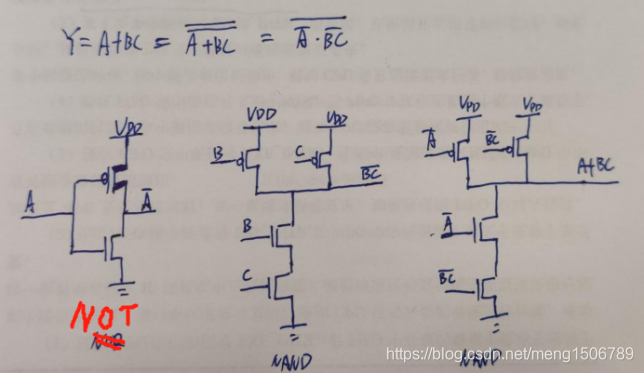 Y=A+BC = \overline{\overline{A+BC}} = \overline{\overline{A}·\overline{BC}}
VDD
A
\overline{A}
NOT
VDD
VDD
B
C
BC
B
C
NAND
VDD
\overline{A}
\overline{BC}
A+BC
\overline{A}
\overline{BC}
NAND
https://blog.csdn.net/meng1506789